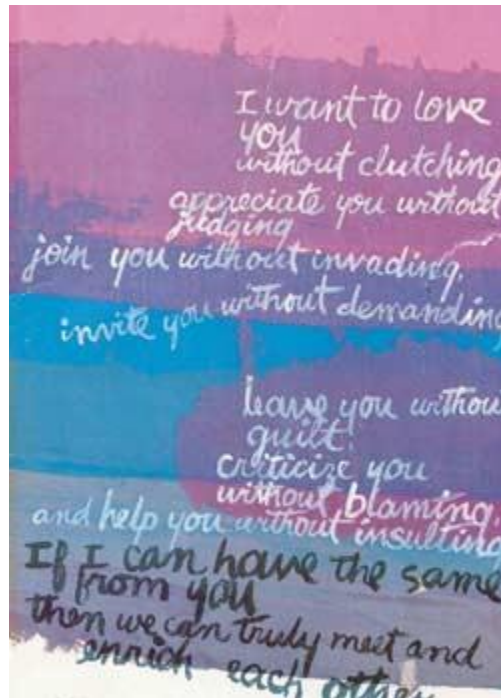 I want to love
you
without clutching
appreciate you without
judging
join you without invading,
invite you without demanding
leave you without
guilt.
criticize you
without blaming
and help you without insulting
If I can have the same
from you
then we can truly meet and
enrich each other